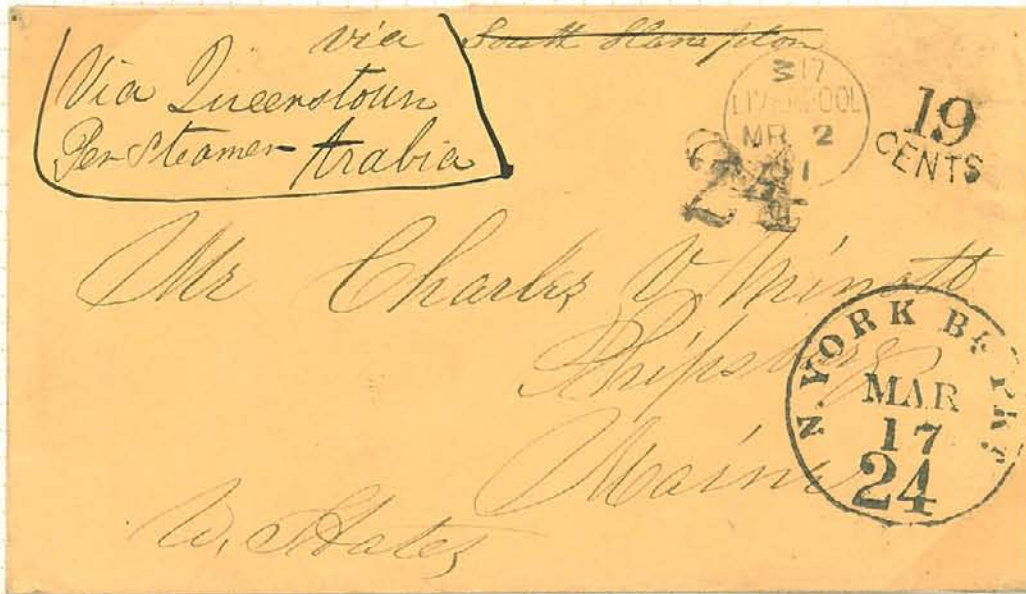 via South Hampton
Via Queenstown
Per Steamer Arabia
3 17
LIVERPOOL
MR 2
1
19
CENTS
24
Mr Charles V Minott
Phipsburg
Maine
U, States
N. YORK Br PKT
MAR
17
24